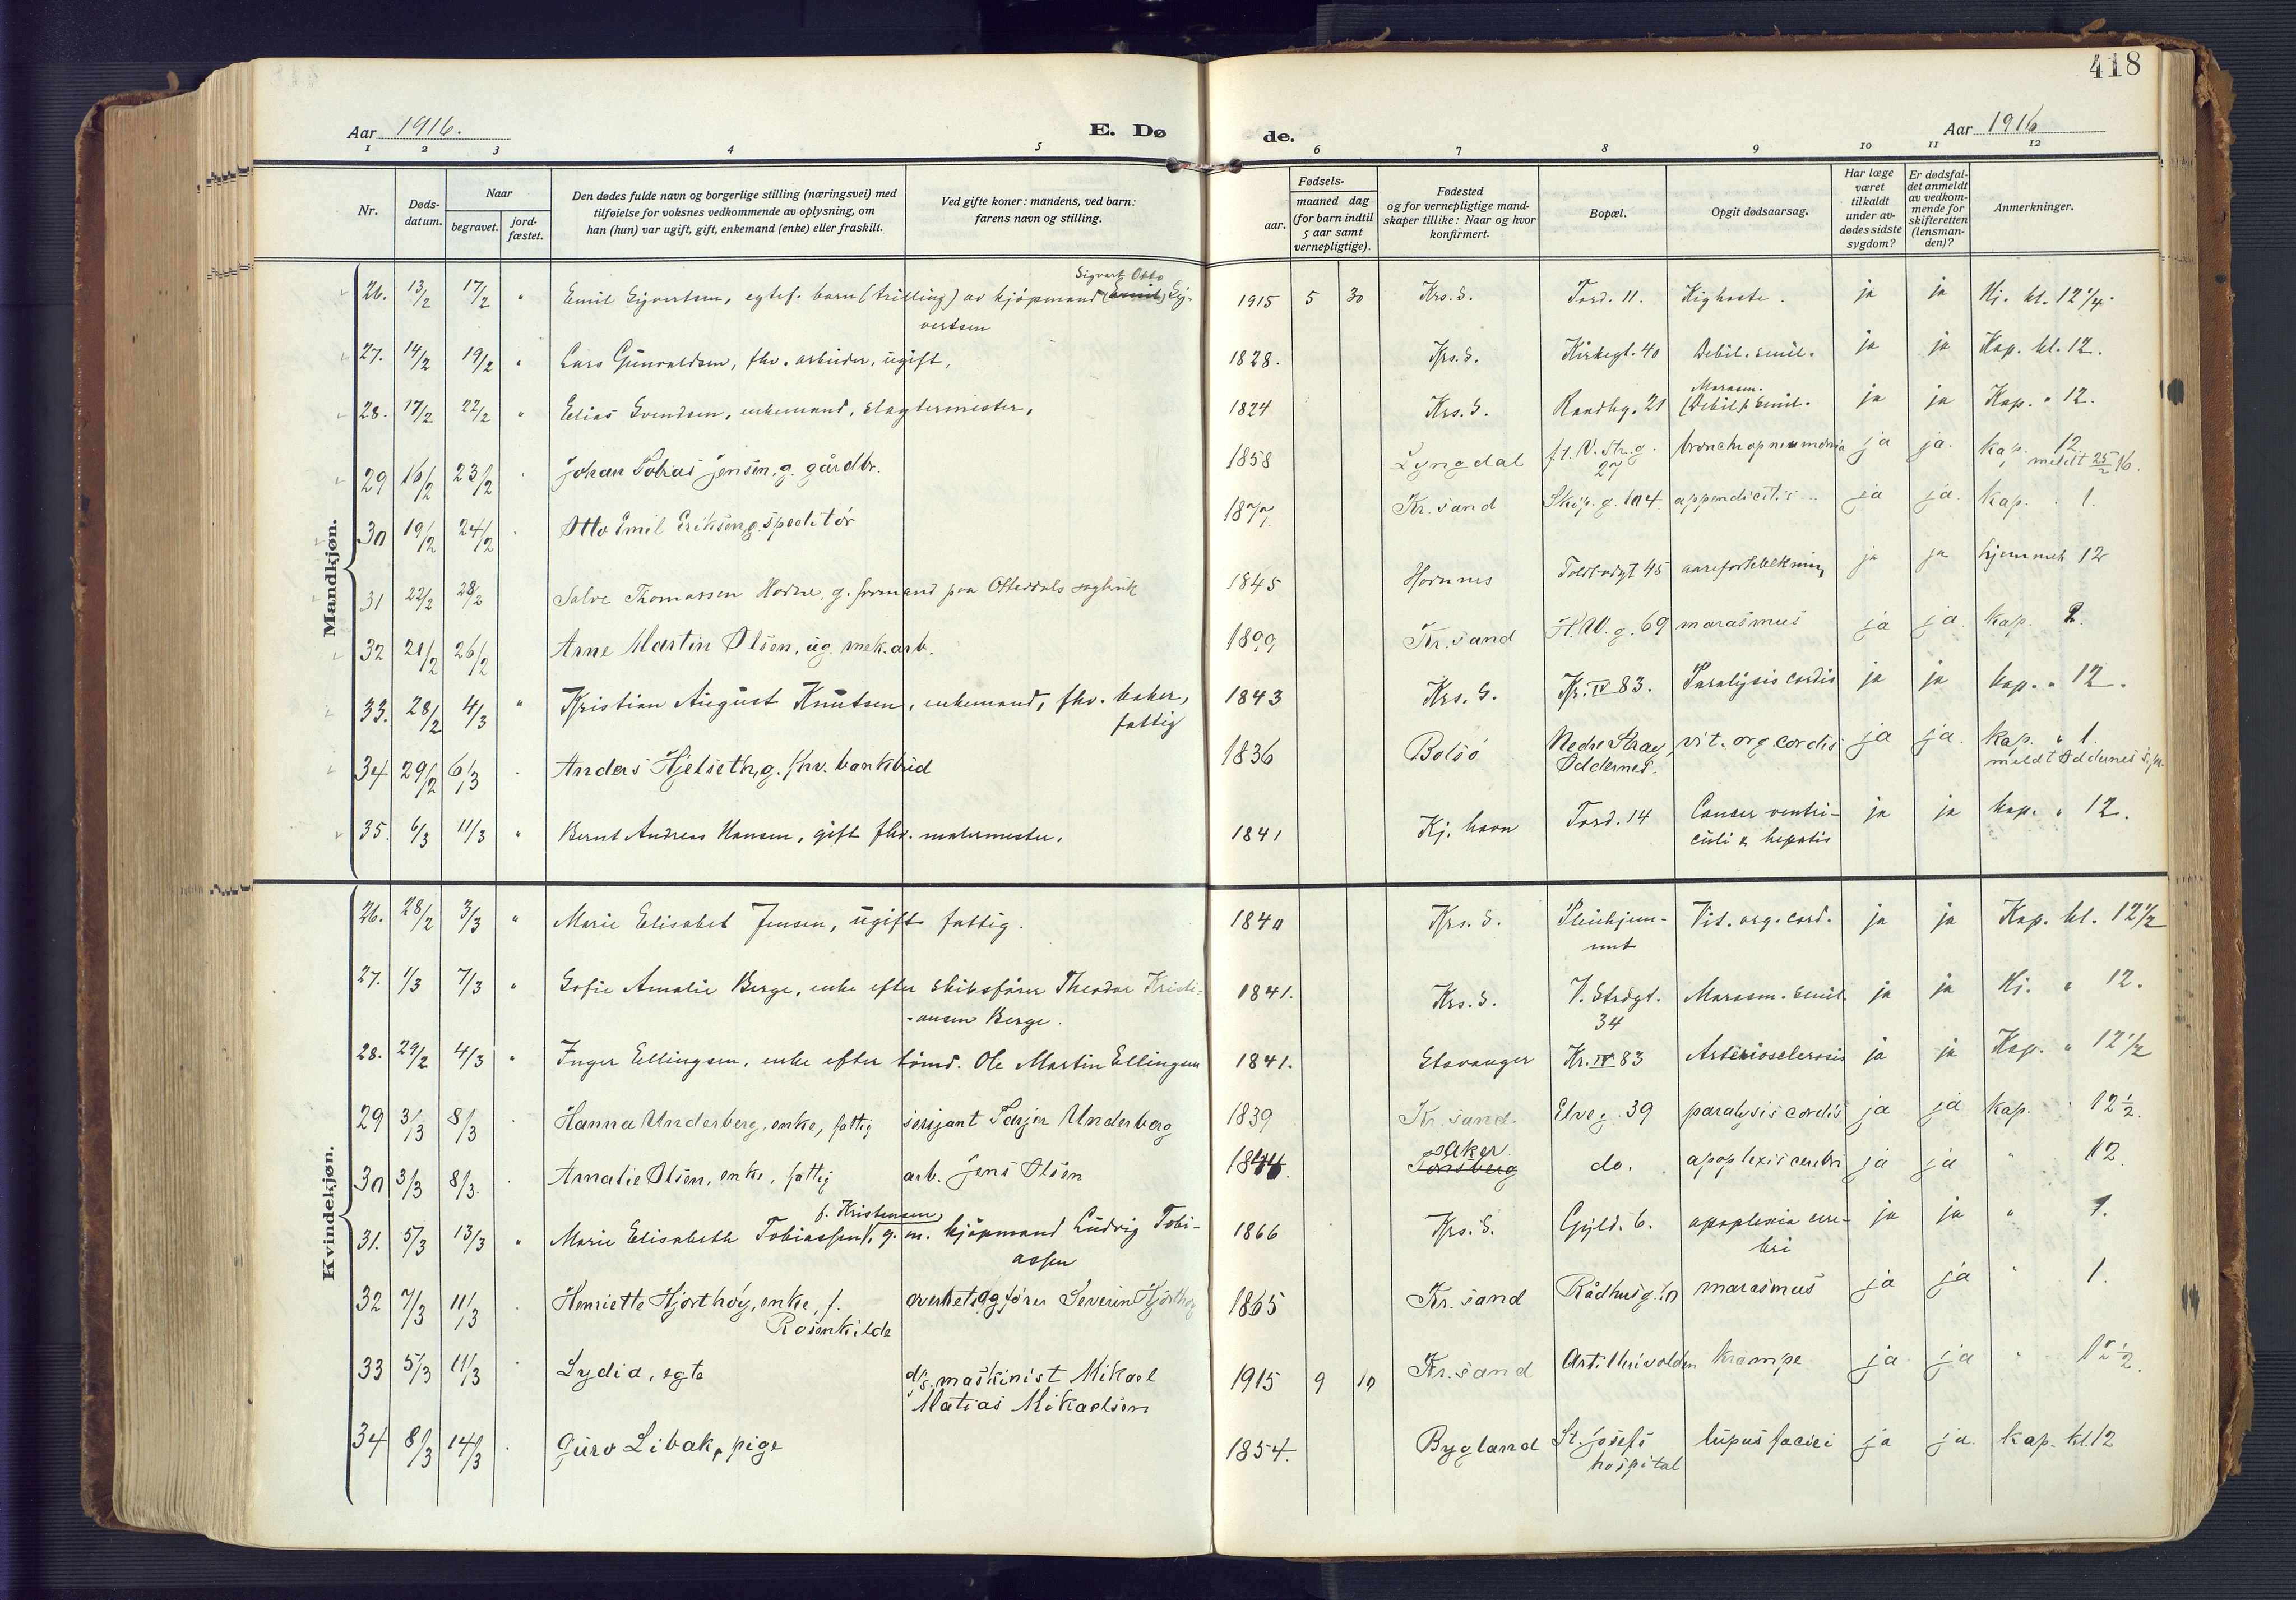 418
Aar 1916. E. Dø de. Aar 1916
1 2 3 4 5 6 7 8 9 10 11 12
Nr. Døds-datum. Naar begravet. jord-fæstet. Den dødes fulde navn og borgerlige stilling (næringsvei) med tilføielse for voksnes vedkommende av oplysning, om han (hun) var ugift, gift, enkemand (enke) eller fraskilt. Ved gifte koner: mandens, ved barn: farens navn og stilling. Fødsels- aar. maaned dag (for barn indtil 5 aar samt vernepligtige). Fødested og for vernepligtige mandskaper tillike: Naar og hvor konfirmert. Bopæl. Opgit dødsaarsag. Har læge været tilkaldt under avdødes sidste sygdom? Er dødsfaldet anmeldt av vedkommende for skifteretten (lensmanden)? Anmerkninger.
Mandkjøn.
Sigvart Otto
26. 13/2 17/2 " Emil Syvertsen, egtef. barn (trilling) av kjøpmand (Emil) Sy- 1915 5 30 Krs.S. Tord. 11. Kighoste. ja ja Hj. kl. 12 1/4.
vertsen
27. 14/2 19/2 " Lars Gunvaldsen, fhv. arbeider, ugift, 1828. Krs.S. Kirkegt. 40 Debil. senil. ja ja Kap. kl. 12.
Marasm.
28. 17/2 22/2 " Elias Svendsen, enkemand, slagtermester, 1824 Krs.S. Randbg. 21 (Debil) senil. ja ja Kap. " 12.
29 16/2 23/2 Johan Tobias Jensen, g. gårdbr. 1858 Lyngdal f.t. V. Str.g. 27 bronchopneumonia ja ja. kap. 12. meldt 25/2 16.
30 19/2 24/2 Otto Emil Eriksen, g. speditør 1877. Kr.sand Skip.g. 104 appendicitis ja ja. kap. 1.
31 22/2 28/2 Salve Thomassen Hodne, g. formand paa Otteddals sagbruk 1845 Hornnes Toldbodgt 45 aareforkalkning ja ja hjemmet 12
32 21/2 26/2 Arne Martin Olsen, ug. mek. arb. 1899 Kr.sand H.W.g. 69 marasmus ja ja. kap. 2.
33. 28/2 4/3 " Kristian August Knutsen, enkemand, fhv. baker, fattig 1843 Krs.S. Kr. IV 83. Paralysis cordis ja ja kap. " 12.
34 29/2 6/3 Anders Hjelseth, g. fhv. bankbud 1836 Bolsø Nedre Strae, Oddernes. vit. org. cordis ja ja. kap. " 1. meldt Oddernes s.pr.
35. 6/3 11/3 " Bernt Andreas Hansen, gift fhv. malermester, 1841 Kj.havn Tord. 14 Cancer ventri-culi & hepatis ja ja kap. " 12.
Kvindekjøn.
26. 28/2 3/3 " Marie Elisabet Jensen, ugift fattig. 1840 Krs.S. Pleiehjem-met Vit. org. cord. ja ja Kap. kl. 12 1/2
27. 1/3 7/3 " Sofie Amalie Berge, enke efter skibsfører Theodor Kristi-ansen Berge. 1841. Krs.S. V. Strdgt. 34 Marasm. senil. ja ja Hj. " 12.
28. 29/2 4/3 " Inger Ellingsen, enke efter tømd. Ole Martin Ellingsen 1841. Stavanger Kr. IV 83 Arteriosclerosis ja ja Kap. " 12 1/2
29 3/3 8/3 Hanna Underberg, enke, fattig sersjant Tarjer Underberg 1839 Kr.sand. Elveg. 39 paralysis cordis ja ja kap. 12 1/2.
30 3/3 8/3. Amalie Olsen, enke, fattig arb. Jens Olsen 1844. Aker. Tønsberg do. apoplexis cerebri ja ja " 12
f. Kristensen,
31. 5/3 13/3 " Marie Elisabeth Tobiassen, g. m. kjøpmand Ludvig Tobi-assen 1866 Krs.S. Gyld. 6. apoplexia cere-bri ja ja " 1.
32 7/3 11/3 Henriette Hjorthøy, enke, f. Rosenkilde overretssagfører Severin Hjorthøy 1865 Kr.sand Rådhusg. 10 marasmus ja ja " 1.
33 5/3 11/3 Lydia, egte d/s. maskinist Mikael Matias Mikaelsen 1915 9 10 Kr.sand Artillerivolden krampe ja ja " 12 1/2.
34 8/3 14/3 Guro Libak, pige 1854. Bygland St. Josefs hospital lupus faciei ja ja. kap. kl. 12